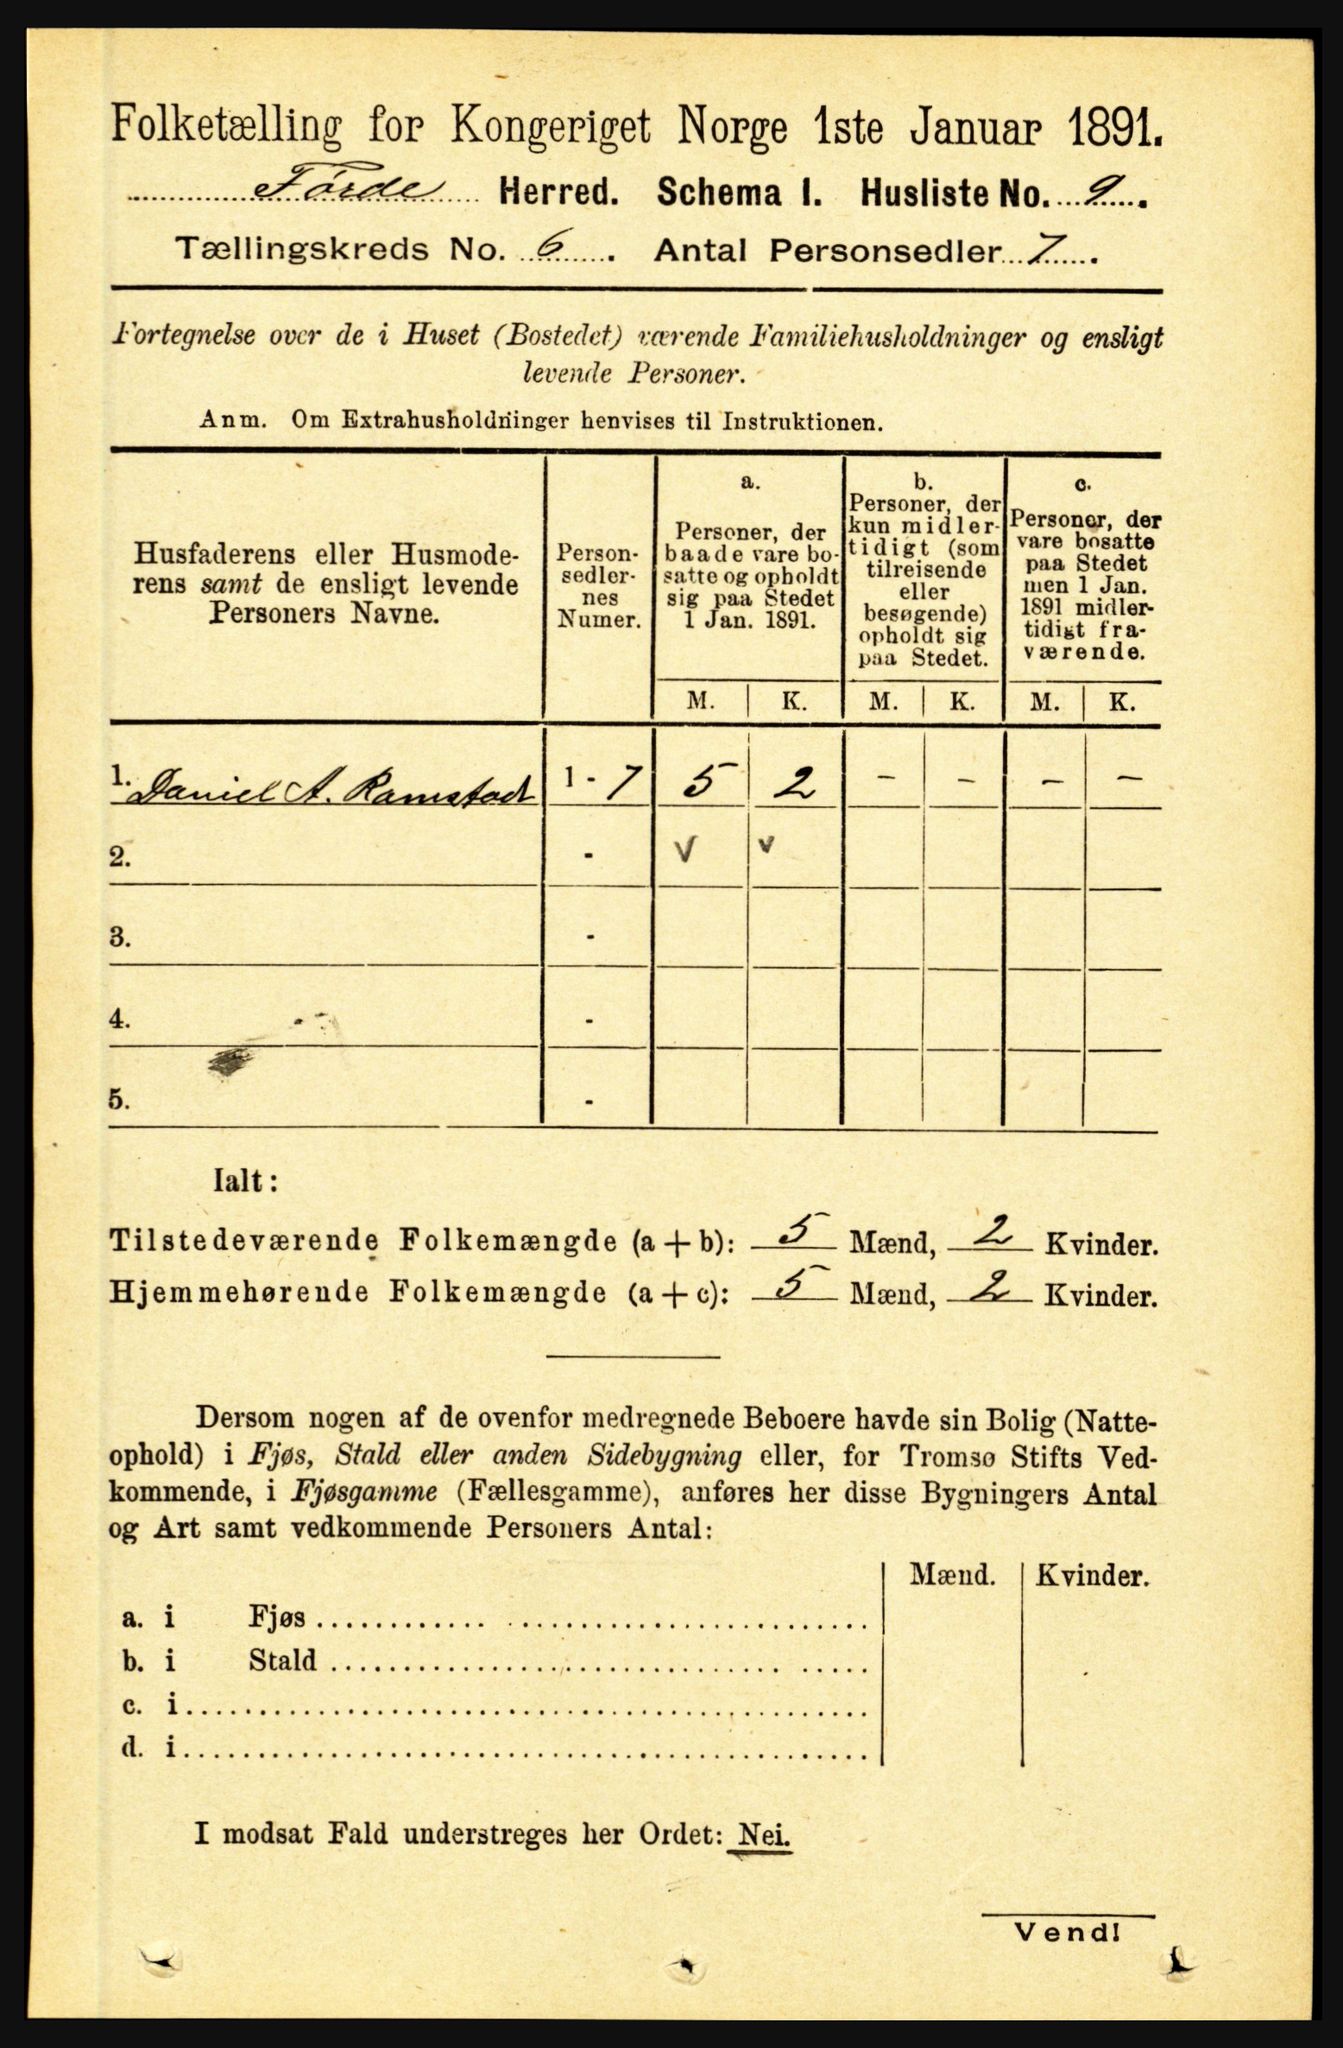 Folketælling for Kongeriget Norge 1ste Januar 1891.
Førde Herred. Schema I. Husliste No. 9.
Tællingskreds No. 6. Antal Personsedler 7.
Fortegnelse over de i Huset (Bostedet) værende Familiehusholdninger og ensligt
levende Personer.
Anm. Om Extrahusholdninger henvises til Instruktionen.
Husfaderens eller Husmode-
rens samt de ensligt levende
Personers Navne.
Person-
sedler-
nes
Numer.
a.
Personer, der
baade vare bo-
satte og opholdt
sig paa Stedet
1 Jan. 1891.
b.
Personer, der
kun midler-
tidigt (som
tilreisende
eller
besøgende)
opholdt sig
paa Stedet.
c.
Personer, der
vare bosatte
paa Stedet
men 1 Jan.
1891 midler-
tidigt fra-
værende.
M. K. M. K. M. K.
1. Daniel A. Ramstad 1 - 7 5 2 - - - -
2. - v v
3. -
4. -
5. -
Ialt:
Tilstedeværende Folkemængde (a + b): 5 Mænd, 2 Kvinder.
Hjemmehørende Folkemængde (a + c): 5 Mænd, 2 Kvinder.
Dersom nogen af de ovenfor medregnede Beboere havde sin Bolig (Natte-
ophold) i Fjøs, Stald eller anden Sidebygning eller, for Tromsø Stifts Ved-
kommende, i Fjøsgamme (Fællesgamme), anføres her disse Bygningers Antal
og Art samt vedkommende Personers Antal:
Mænd. Kvinder.
a. i Fjøs
b. i Stald
c. i
d. i
I modsat Fald understreges her Ordet: Nei.
Vend!